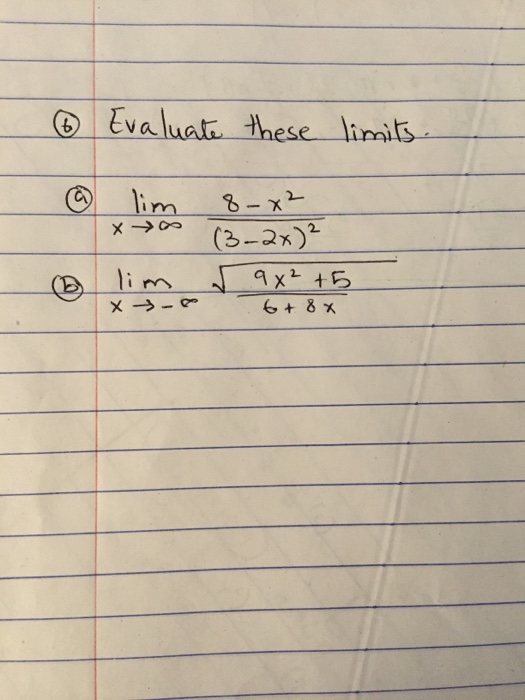 ⑥ Evaluate these limits.
ⓐ lim x→∞ (8 - x²)/((3-2x)²)
ⓑ lim x→-∞ √((9x² + 5)/(6 + 8x))